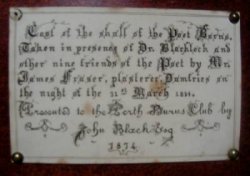 Cast of the skull of the Poet Burns,
Taken in presence of Dr. Blacklock and
other nine friends of the Poet by Mr.
James Fraser, plasterer, Dumfries on
the night of the 31st March 1834.
Presented to the Perth Burns Club by
John Black Esq
1874